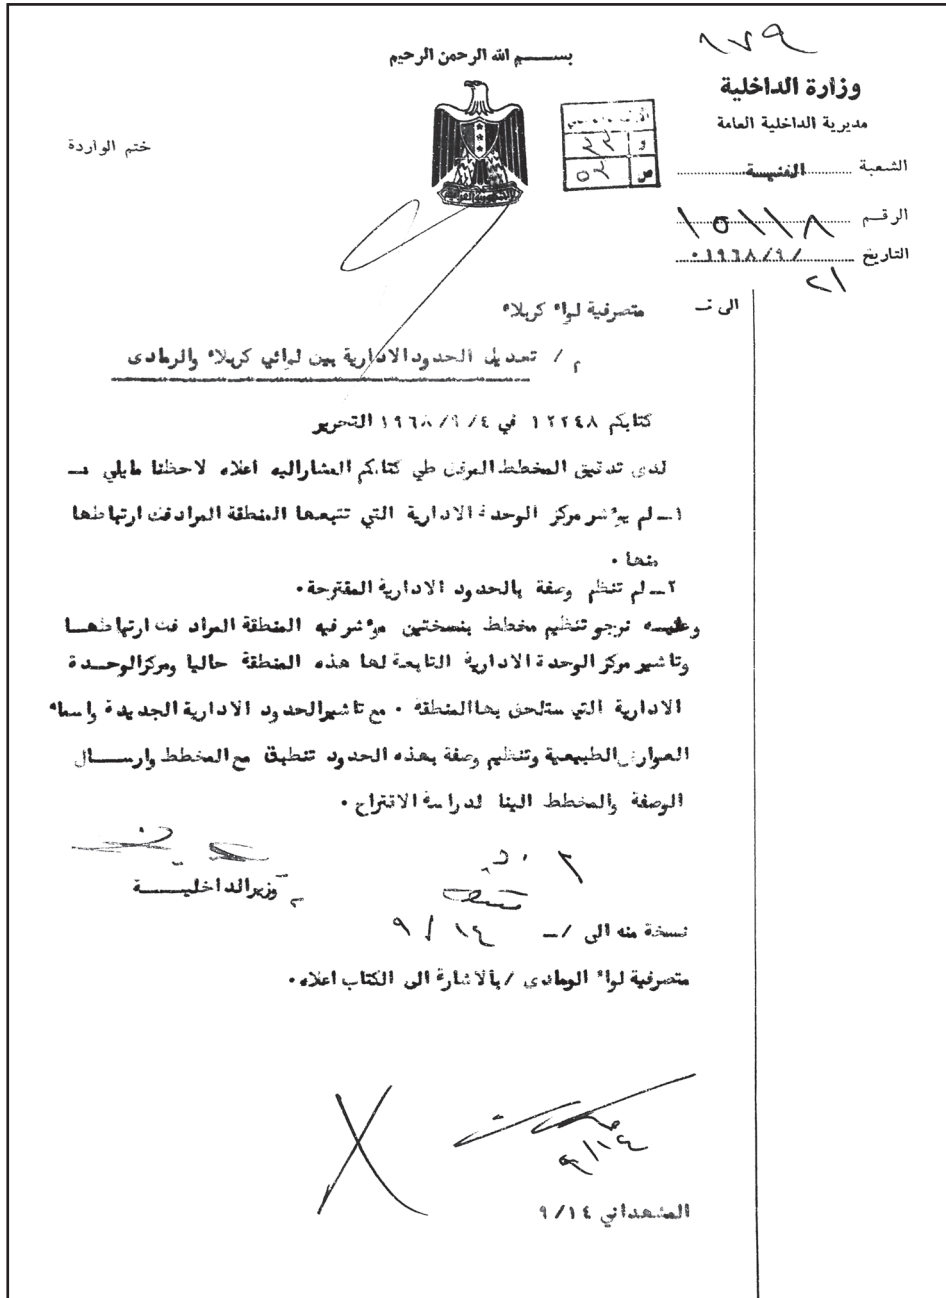 ١٧٩
بســـم الله الرحمن الرحيم
وزارة الداخلية
مديرية الداخلية العامة
ختم الواردة
و ٢٢
ص ٥٢
الشعبة الفنيـة
الرقـم ١٥١١٨
التاريخ ٢١ /٩/ ١٩٦٨٠
الى :ـ متصرفية لواء كربلاء
م / تعديل الحدود الادارية بين لوائي كربلاء والرمادى
كتابكم ١٢٢٤٨ في ٤/٩/١٩٦٨ التحرير
لدى تدقيق المخطط المرفق طي كتابكم المشاراليه اعلاه لاحظنا مايلي :ـ
١ــ لم يؤشر مركز الوحدة الادارية التي تتبعها المنطقة المراد فك ارتباطها
منها ٠
٢ــ لم تنظم وصفة بالحدود الادارية المقترحة٠
وعليـه نرجو تنظيم مخطط بنسختين مؤشر فيه المنطقة المراد فك ارتباطهـا
وتاشير مركز الوحدة الادارية التابعة لها هذه المنطقة حاليا ومركزالوحـدة
الادارية التي ستلحق بهاالمنطقة ٠ مع تاشيرالحدود الادارية الجديدة واسماء
العوارض الطبيعية وتنظيم وصفة بهذه الحدود تنطبق مع المخطط وارســال
الوصفة والمخطط الينا لدراسة الاقتراح ٠
وزيرالداخليــــة
نسخة منه الى /ــ
١٤ / ٩
متصرفية لواء الومادى /بالاشارة الى الكتاب اعلاه٠
٩/١٤
المشهداني ٩/١٤